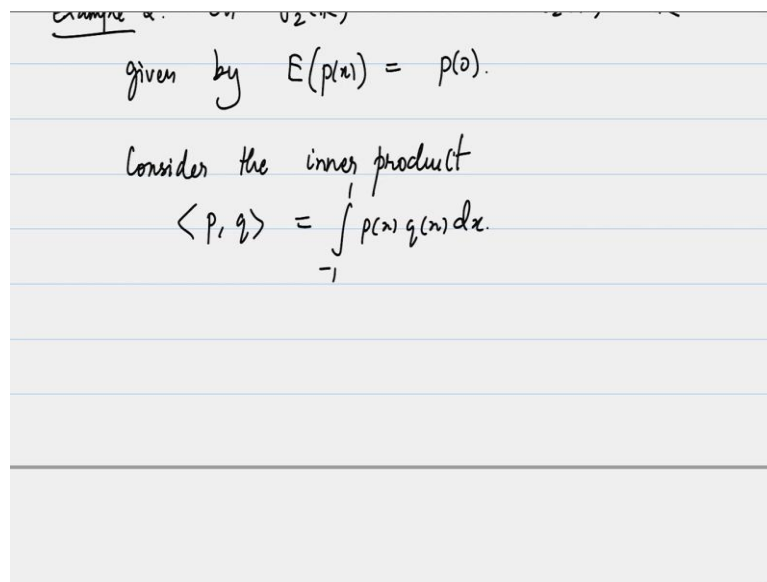 Example 2:
given by E(p(x)) = p(0).
Consider the inner product
<p, q> = ∫_{-1}^{1} p(x) q(x) dx.